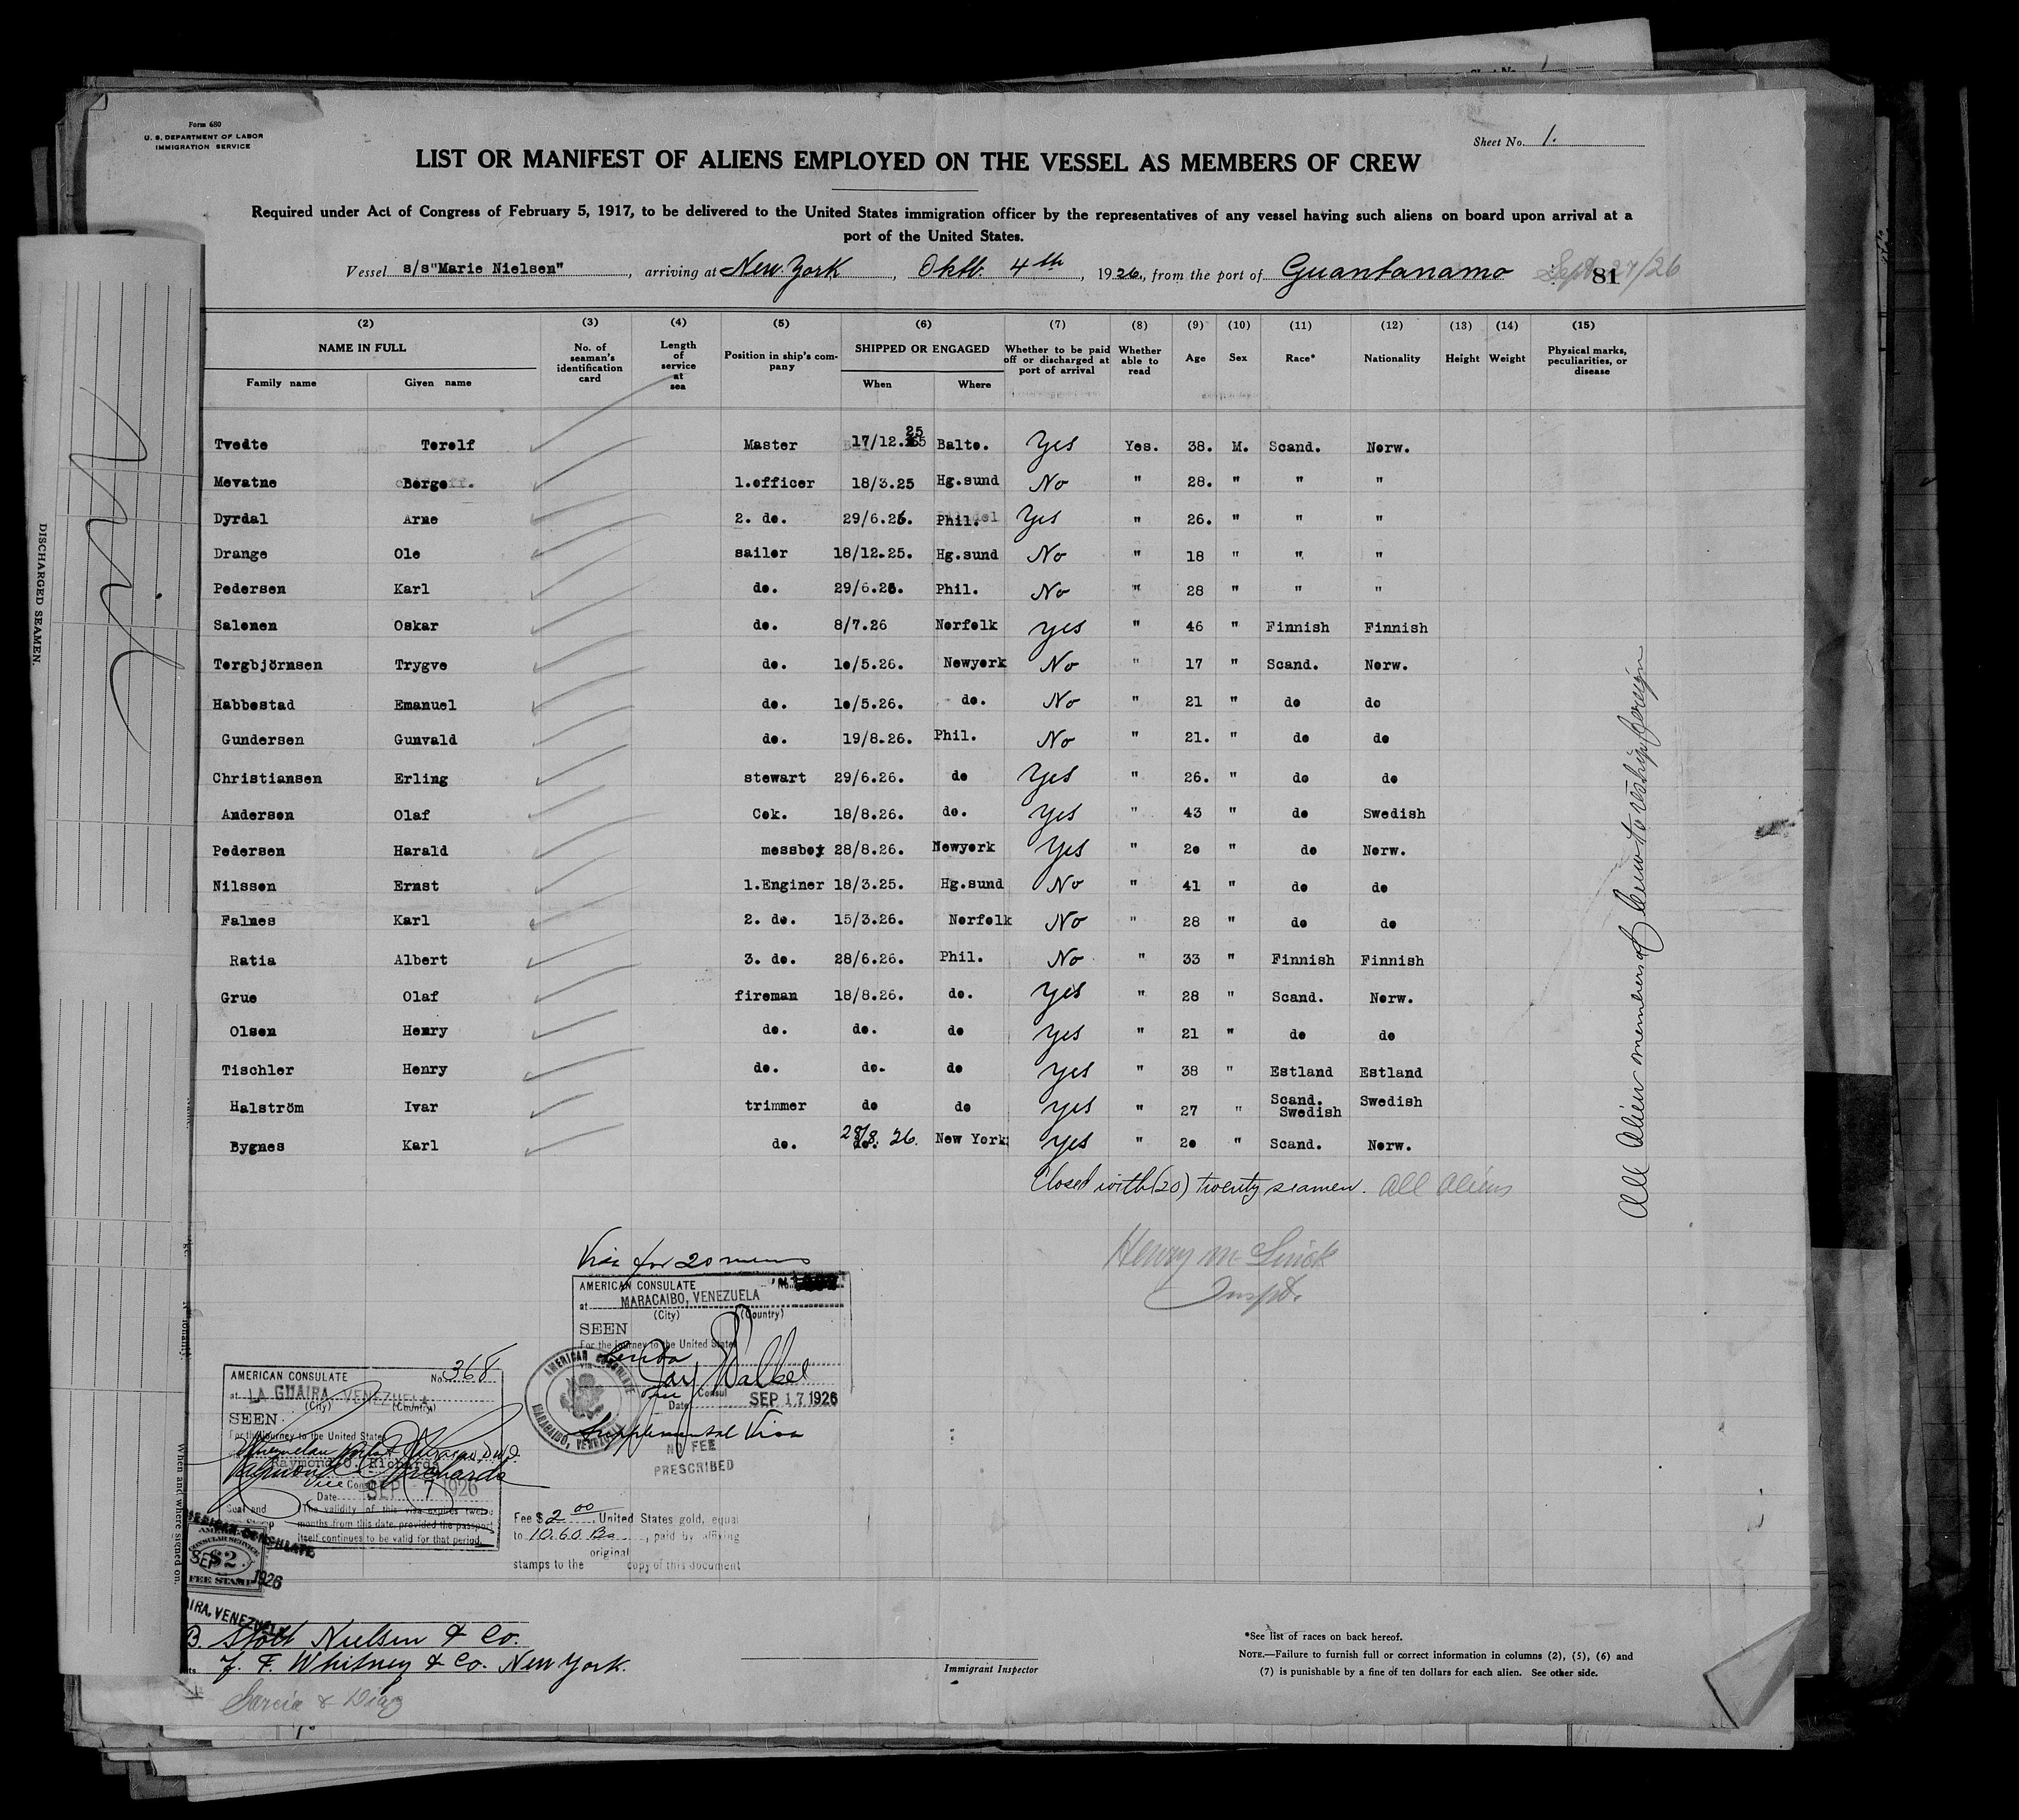 Form 680
U. S. DEPARTMENT OF LABOR
IMMIGRATION SERVICE
Sheet No. 1.
LIST OR MANIFEST OF ALIENS EMPLOYED ON THE VESSEL AS MEMBERS OF CREW
Required under Act of Congress of February 5, 1917, to be delivered to the United States immigration officer by the representatives of any vessel having such aliens on board upon arrival at a
port of the United States.
Vessel s/s"Marie Nielsen", arriving at New York, Oktb. 4th, 1926, from the port of Guantanamo Sept 27/26
81
(2) (3) (4) (5) (6) (7) (8) (9) (10) (11) (12) (13) (14) (15)
NAME IN FULL No. of seaman's identification card Length of service at sea Position in ship's company SHIPPED OR ENGAGED Whether to be paid off or discharged at port of arrival Whether able to read Age Sex Race* Nationality Height Weight Physical marks, peculiarities, or disease
Family name Given name When Where
Tvedte Torolf Master 17/12.25 Balto. Yes Yes. 38. M. Scand. Norw.
Mevatne Borge 1.officer 18/3.25 Hg.sund No " 28. " " "
Dyrdal Arne 2. do. 29/6.26. Phil. Yes " 26. " " "
Drange Ole sailor 18/12.25. Hg.sund No " 18 " " "
Pedersen Karl do. 29/6.26. Phil. No " 28 " " "
Salonen Oskar do. 8/7.26 Norfolk Yes " 46 " Finnish Finnish
Torgbjörnsen Trygve do. 1o/5.26. Newyork No " 17 " Scand. Norw.
Habbestad Emanuel do. 1o/5.26. do. No " 21 " do do
Gundersen Gunvald do. 19/8.26. Phil. No " 21. " do do
Christiansen Erling stewart 29/6.26. do Yes " 26. " do do
Andersen Olaf Cok. 18/8.26. do. Yes " 43 " do Swedish
Pedersen Harald messboy 28/8.26. Newyork Yes " 2o " do Norw.
Nilsson Ernst 1.Enginer 18/3.25. Hg.sund No " 41 " do do
Falnes Karl 2. do. 15/3.26. Norfolk No " 28 " do do
Ratia Albert 3. do. 28/6.26. Phil. No " 33 " Finnish Finnish
Grue Olaf fireman 18/8.26. do. Yes " 28 " Scand. Norw.
Olsen Henry do. do. do Yes " 21 " do do
Tischler Henry do. do. do Yes " 38 " Estland Estland
Halström Ivar trimmer do do Yes " 27 " Scand. Swedish Swedish
Bygnes Karl do. 28/8. 26. New York Yes " 2o " Scand. Norw.
Closed with (20) twenty seamen. All aliens
All Alien members of Crew to reship foreign
Inspt.
Visa for 20 mems
AMERICAN CONSULATE No.
at MARACAIBO, VENEZUELA
(City) (Country)
SEEN
For the journey to the United States
Consul
Date SEP 17 1926
AMERICAN CONSULATE
MARACAIBO, VENEZUELA
Supplemental Visa
NO FEE
PRESCRIBED
AMERICAN CONSULATE No. 368
at LA GUAIRA, VENEZUELA
(City) (Country)
SEEN
For the journey to the United States
Raymond O. Richards
Vice Consul
Date SEP 7 1926
Seal and
The validity of this visa expires twelve
months from this date, provided the passport
itself continues to be valid for that period.
AMERICAN CONSULATE
CONSULAR SERVICE
SEP $2 1926
FEE STAMP
IRA, VENEZUELA
Fee $ 2 00, United States gold, equal
to 10.60 Bs, paid by affixing
original
stamps to the copy of this document
B. Stolt Nielsen & Co.
F. Whitney & Co. New York.
Garcia & Diaz
Immigrant Inspector
*See list of races on back hereof.
NOTE.—Failure to furnish full or correct information in columns (2), (5), (6) and
(7) is punishable by a fine of ten dollars for each alien. See other side.
DISCHARGED SEAMEN.
Nil
When and where signed on.